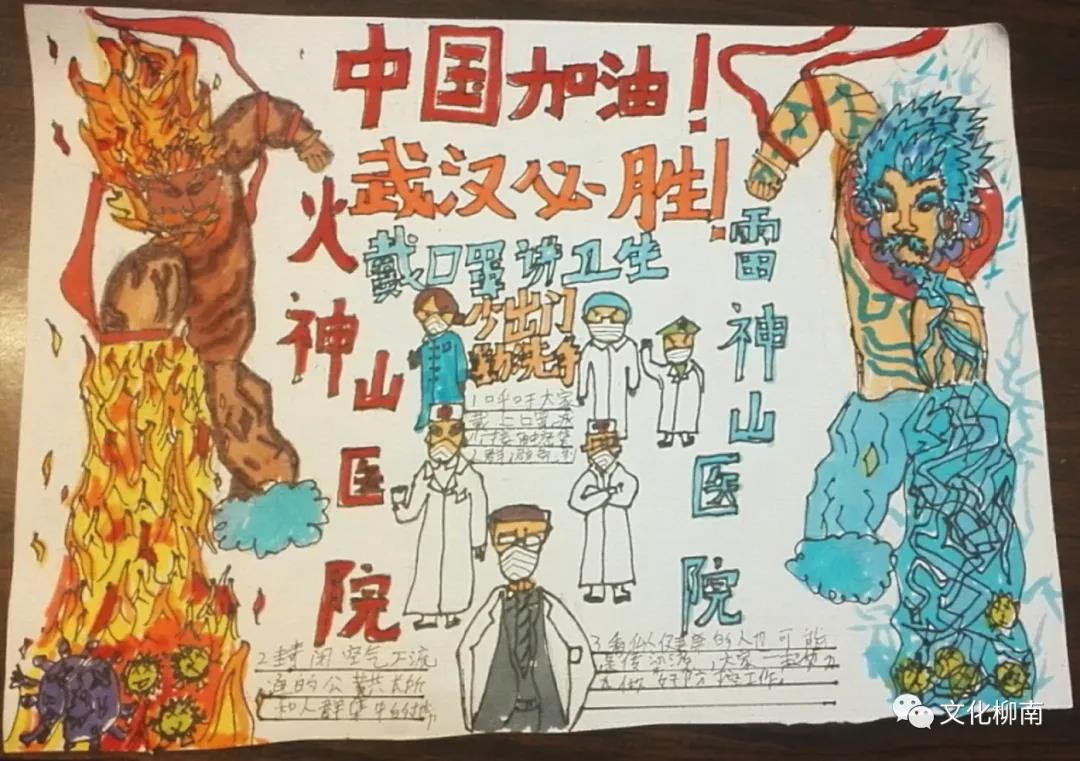 中国加油！
武汉必胜！
戴口罩讲卫生
少出门
勤洗手
火神山医院
雷神山医院
1呼吁大家
戴上口罩减
少接触
2封闭空气不流
通的公共长所
和人群集中的
3看似健康的人也可能
是传染源，大家一起努力
做好防控工作。
文化柳南